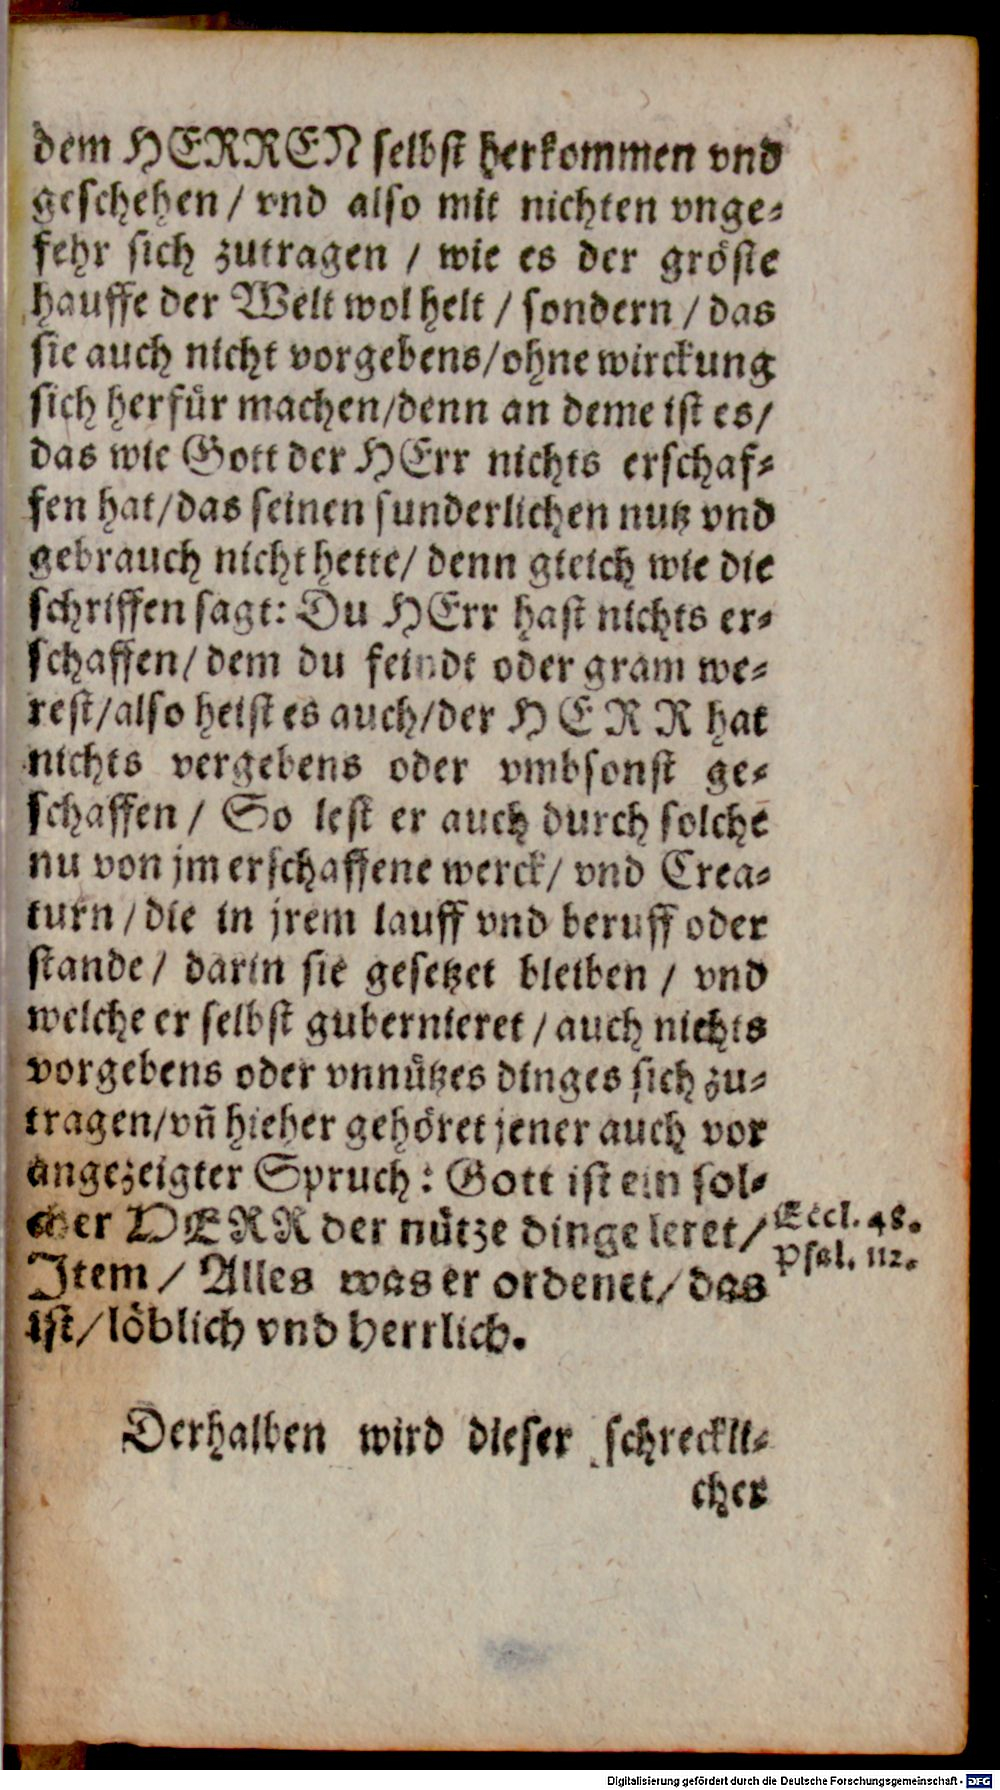 dem HERREN selbst herkommen vnd
geschehen / vnd also mit nichten vnge-
fehr sich zutragen / wie es der gröste
hauffe der Welt wol helt / sondern / das
sie auch nicht vorgebens/ohne wirckung
sich herfür machen/denn an deme ist es/
das wie Gott der HErr nichts erschaf-
fen hat/das seinen sunderlichen nutz vnd
gebrauch nicht hette/ denn gleich wie die
schriffen sagt: Du HErr hast nichts er-
schaffen/ dem du feindt oder gram we-
rest/also heist es auch/der HERR hat
nichts vergebens oder vmbsonst ge-
schaffen / So lest er auch durch solche
nu von jm erschaffene werck/ vnd Crea-
turn / die in jrem lauff vnd beruff oder
stande / darin sie gesetzet bleiben / vnd
welche er selbst gubernieret / auch nichts
vorgebens oder vnnützes dinges sich zu-
tragen/vñ hieher gehöret jener auch vor
angezeigter Spruch: Gott ist ein sol-
cher HERR der nütze dinge leret/
Eccl. 48.
Psal. 112.
Item / Alles was er ordenet/ das
ist/ löblich vnd herrlich.
Derhalben wird dieser schreckli-
cher
Digitalisierung gefördert durch die Deutsche Forschungsgemeinschaft - DFG